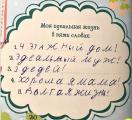 Моя идеальная жизнь
в пяти словах
1. 4 этажный дом!
2. Идеальный муж!
3. 3 детей!
4. хорошая мама!
5. Долгая жизнь!